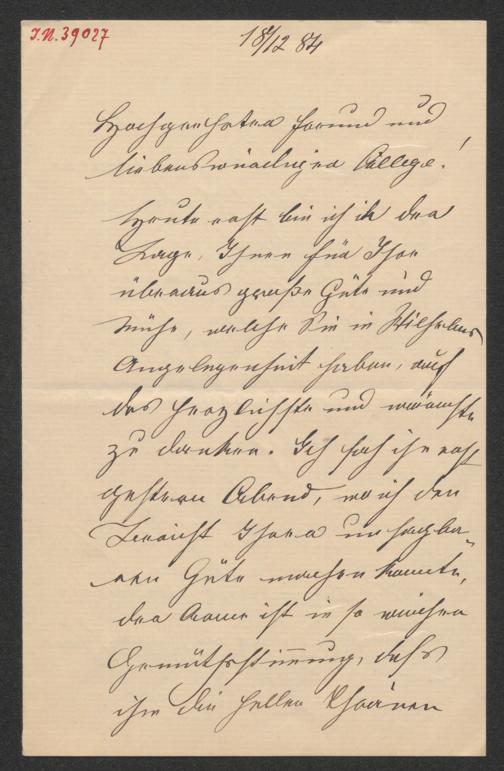 I.N. 39027
18/12 84
Hochgeehrter Freund und
liebenswürdiger College!
Heute erst bin ich in der
Lage, Ihnen für Ihre
überaus große Güte und
Mühe, welche Sie in Wilhelms
Angelegenheit haben, auf
das herzlichste und wärmste
zu danken. Ich sah ihn erst
gestern Abend, wo ich den
Bericht Ihrer unsagba-
ren Güte machen konnte,
der Arme ist in so weicher
Gemüthsstimmung, daß
ihm die hellen Thränen